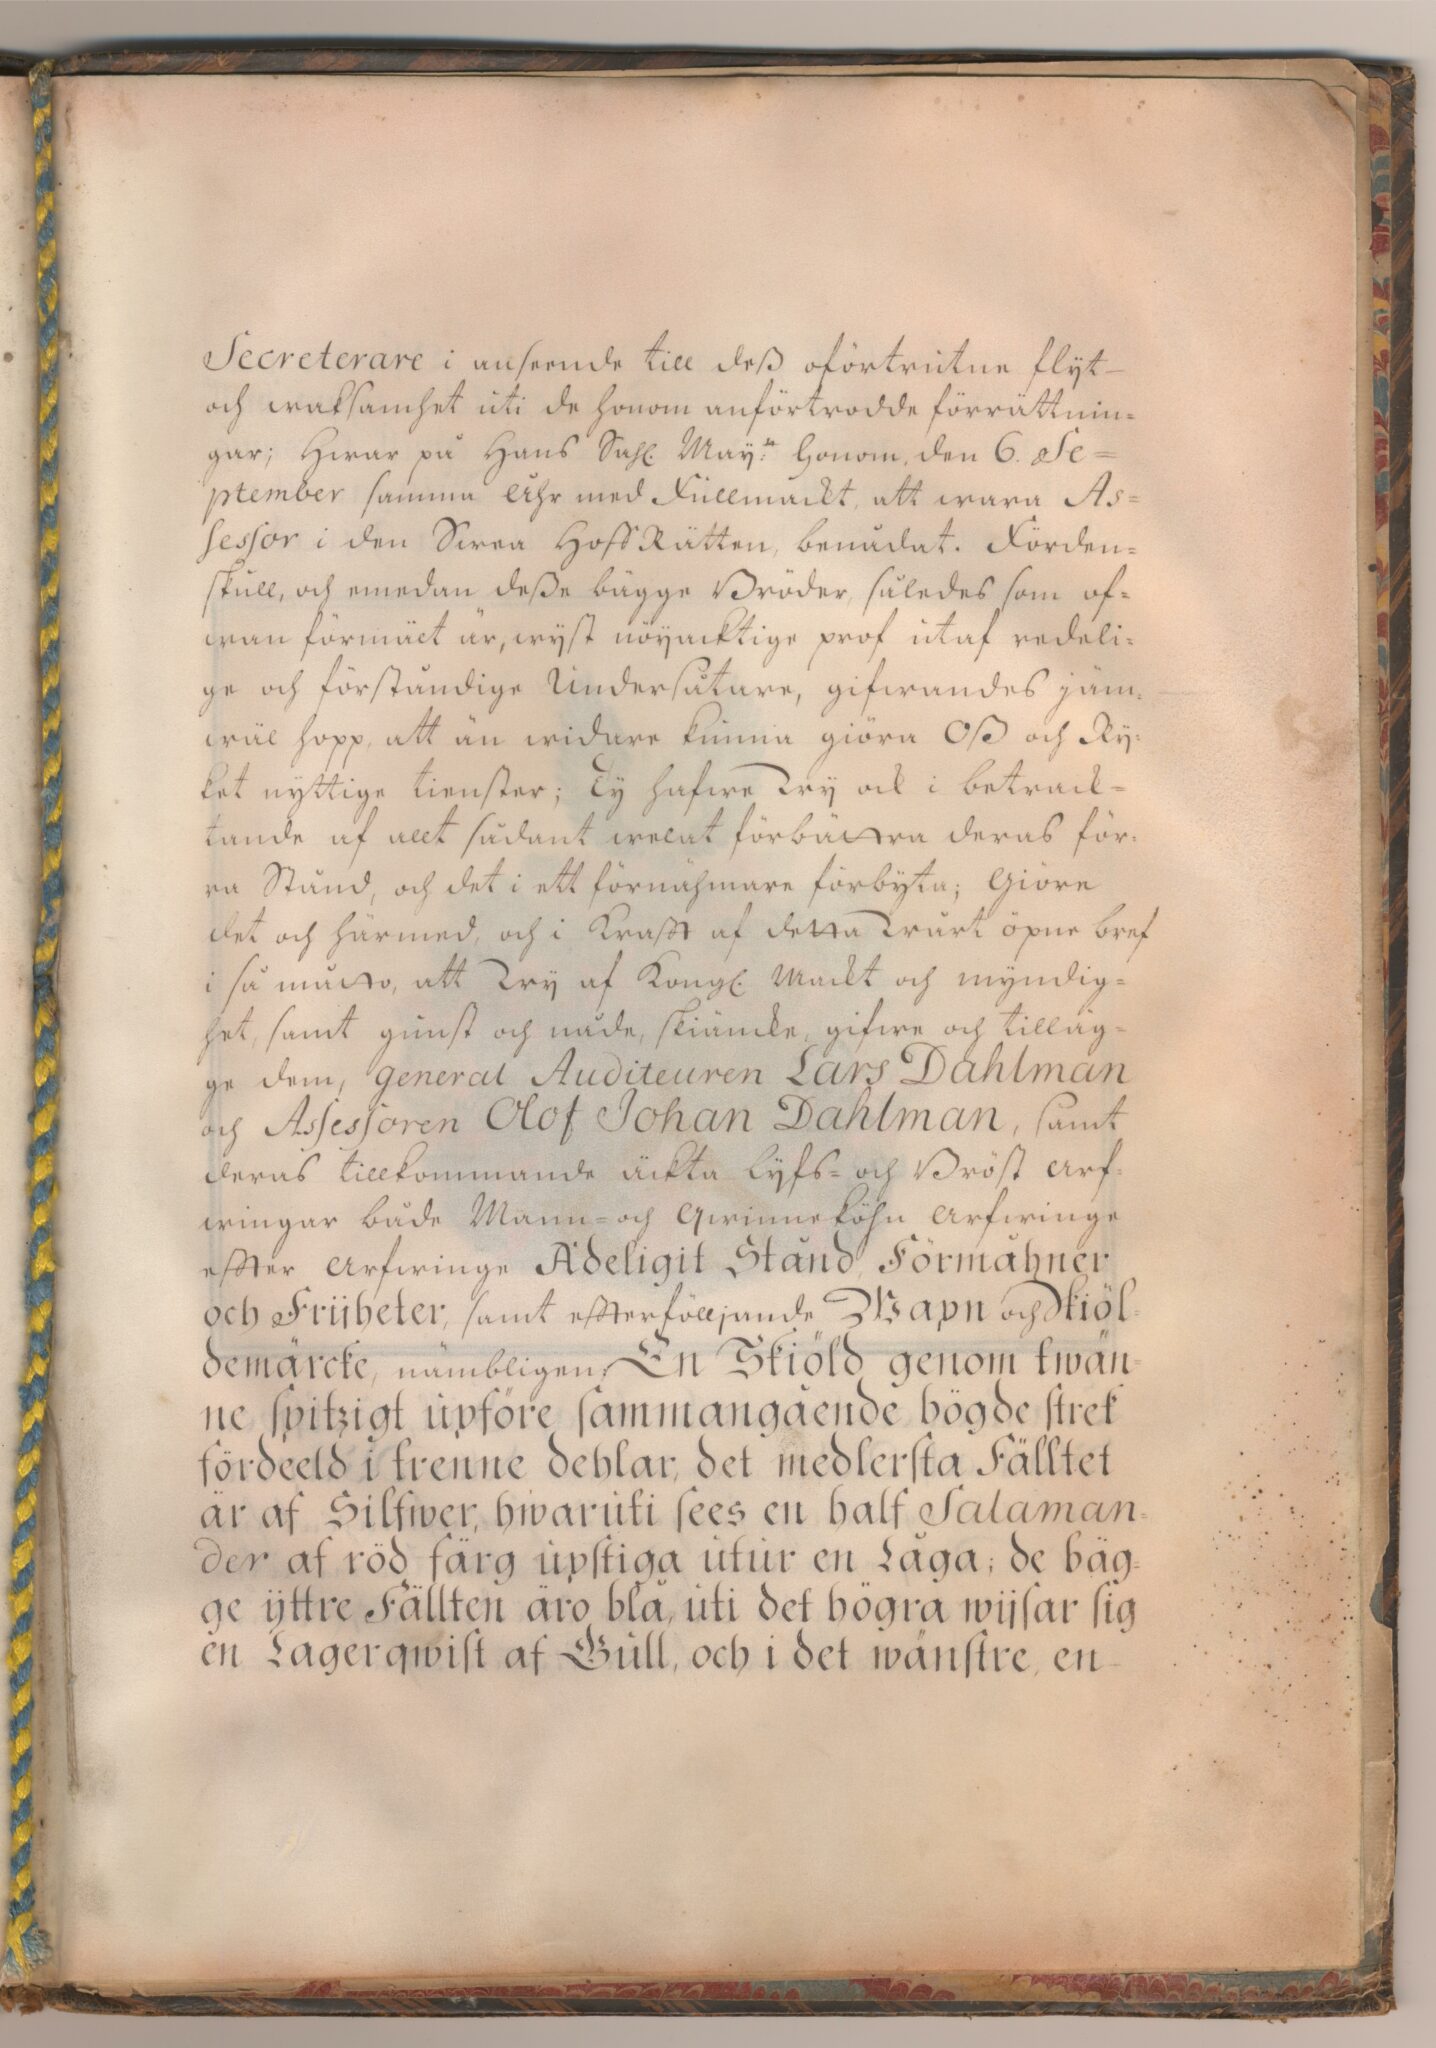 Secreterare i anseende till deß oförtrutne flÿt
och waksamhet uti de honom anförtrodde förrättnin-
gar; Hwar på Hans Sahl. Maÿ:tt honom, den 6. Se=
ptember samma Åhr med Fullmackt, att wara As=
sessor i den Swea HoffRätten, benådat. Förden=
skull, och emedan deße bägge Bröder, således som of-
wan förmält är, wÿst nöÿacktige prof utaf redeli-
ge och förståndige Undersåtare, gifwandes jäm-
wäl hopp, att än widare kunna giöra Oß och Rÿ-
ket nyttige tienster; Ty hafwe Wÿ ock i betrack-
tande af allt sådant welat förbättra deras för-
ra Stånd, och det i ett förnähmare förbÿta; Giöre
det och härmed, och i Krafft af detta Wårt öpne bref
i så måtto, att Wÿ af Kongl. Mackt och myndig-
het, samt gunst och nåde, skiäncke, gifwe och tilläg-
ge dem, General Auditeuren Lars Dahlman
och Assessoren Olof Johan Dahlman, samt
deras tillkommande äckta Lÿfs- och Bröst Arf-
wingar både Mann- och Qwinneköhn Arfwinge
effter Arfwinge Adeligit Stånd, Förmåhner
och Frÿheter, samt effterfölljande Wapn och Skiöl-
demärcke, nämbligen: En Skiöld genom twän-
ne spitzigt upföre sammangående bögde strek
fördeeld i trenne dehlar, det medlersta Fälltet
är af Silfwer, hwaruti sees en half Salaman-
der af röd färg upstiga utur en Låga; de bäg-
ge ÿttre Fällten äro blå, uti det högra wÿsar sig
en Lagerqwist af Gull, och i det wänstre, en